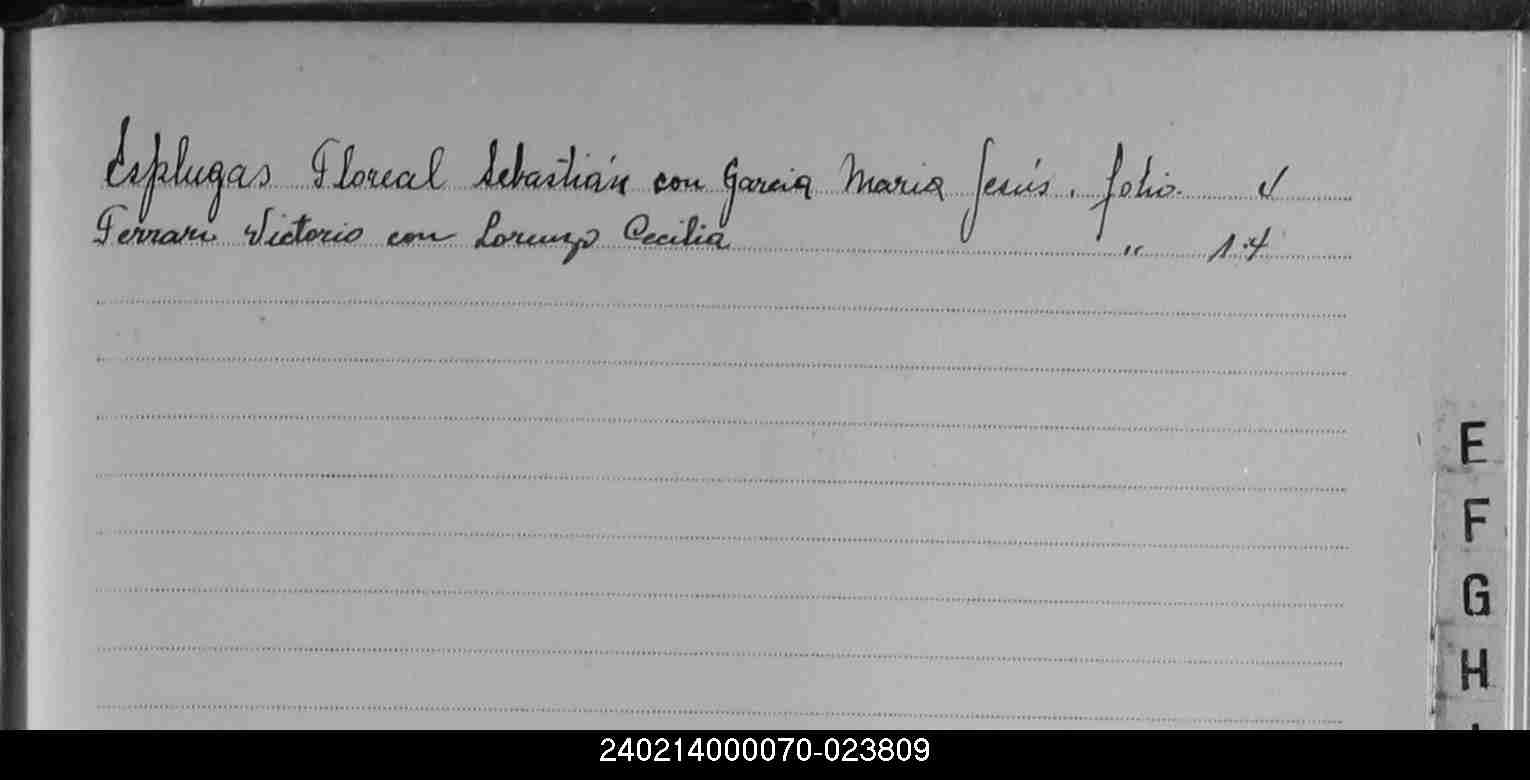 Esplugas Floreal Sebastián con Garcia Maria Jesús. folio
Ferrari Victorio con Lorenzo Cecilia " 14
E
F
G
H
240214000070-023809